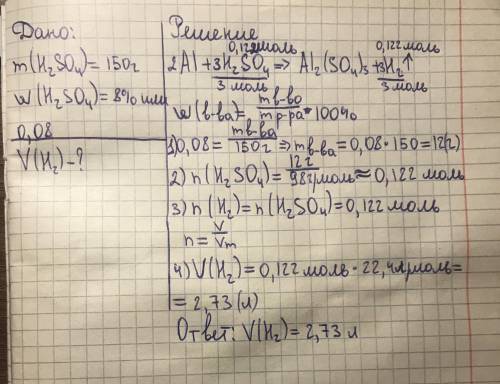 Дано:
m(H₂SO₄)= 150г
w(H₂SO₄)= 8% или
0,08
V(H₂)-?
Решение
0,122моль 0,122моль
2Al + 3H₂SO₄ => Al₂(SO₄)₃ + 3H₂↑
3 моль 3 моль
w(в-ва)= mв-ва/mр-ра * 100%
1) 0,08 = mв-ва/150г => mв-ва = 0,08 · 150 = 12(г)
2) n(H₂SO₄)= 12г/98г/моль ≈ 0,122 моль
3) n(H₂)= n(H₂SO₄)= 0,122 моль
n = V/Vm
4) V(H₂)= 0,122 моль · 22,4л/моль=
= 2,73 (л)
Ответ: V(H₂)= 2,73 л